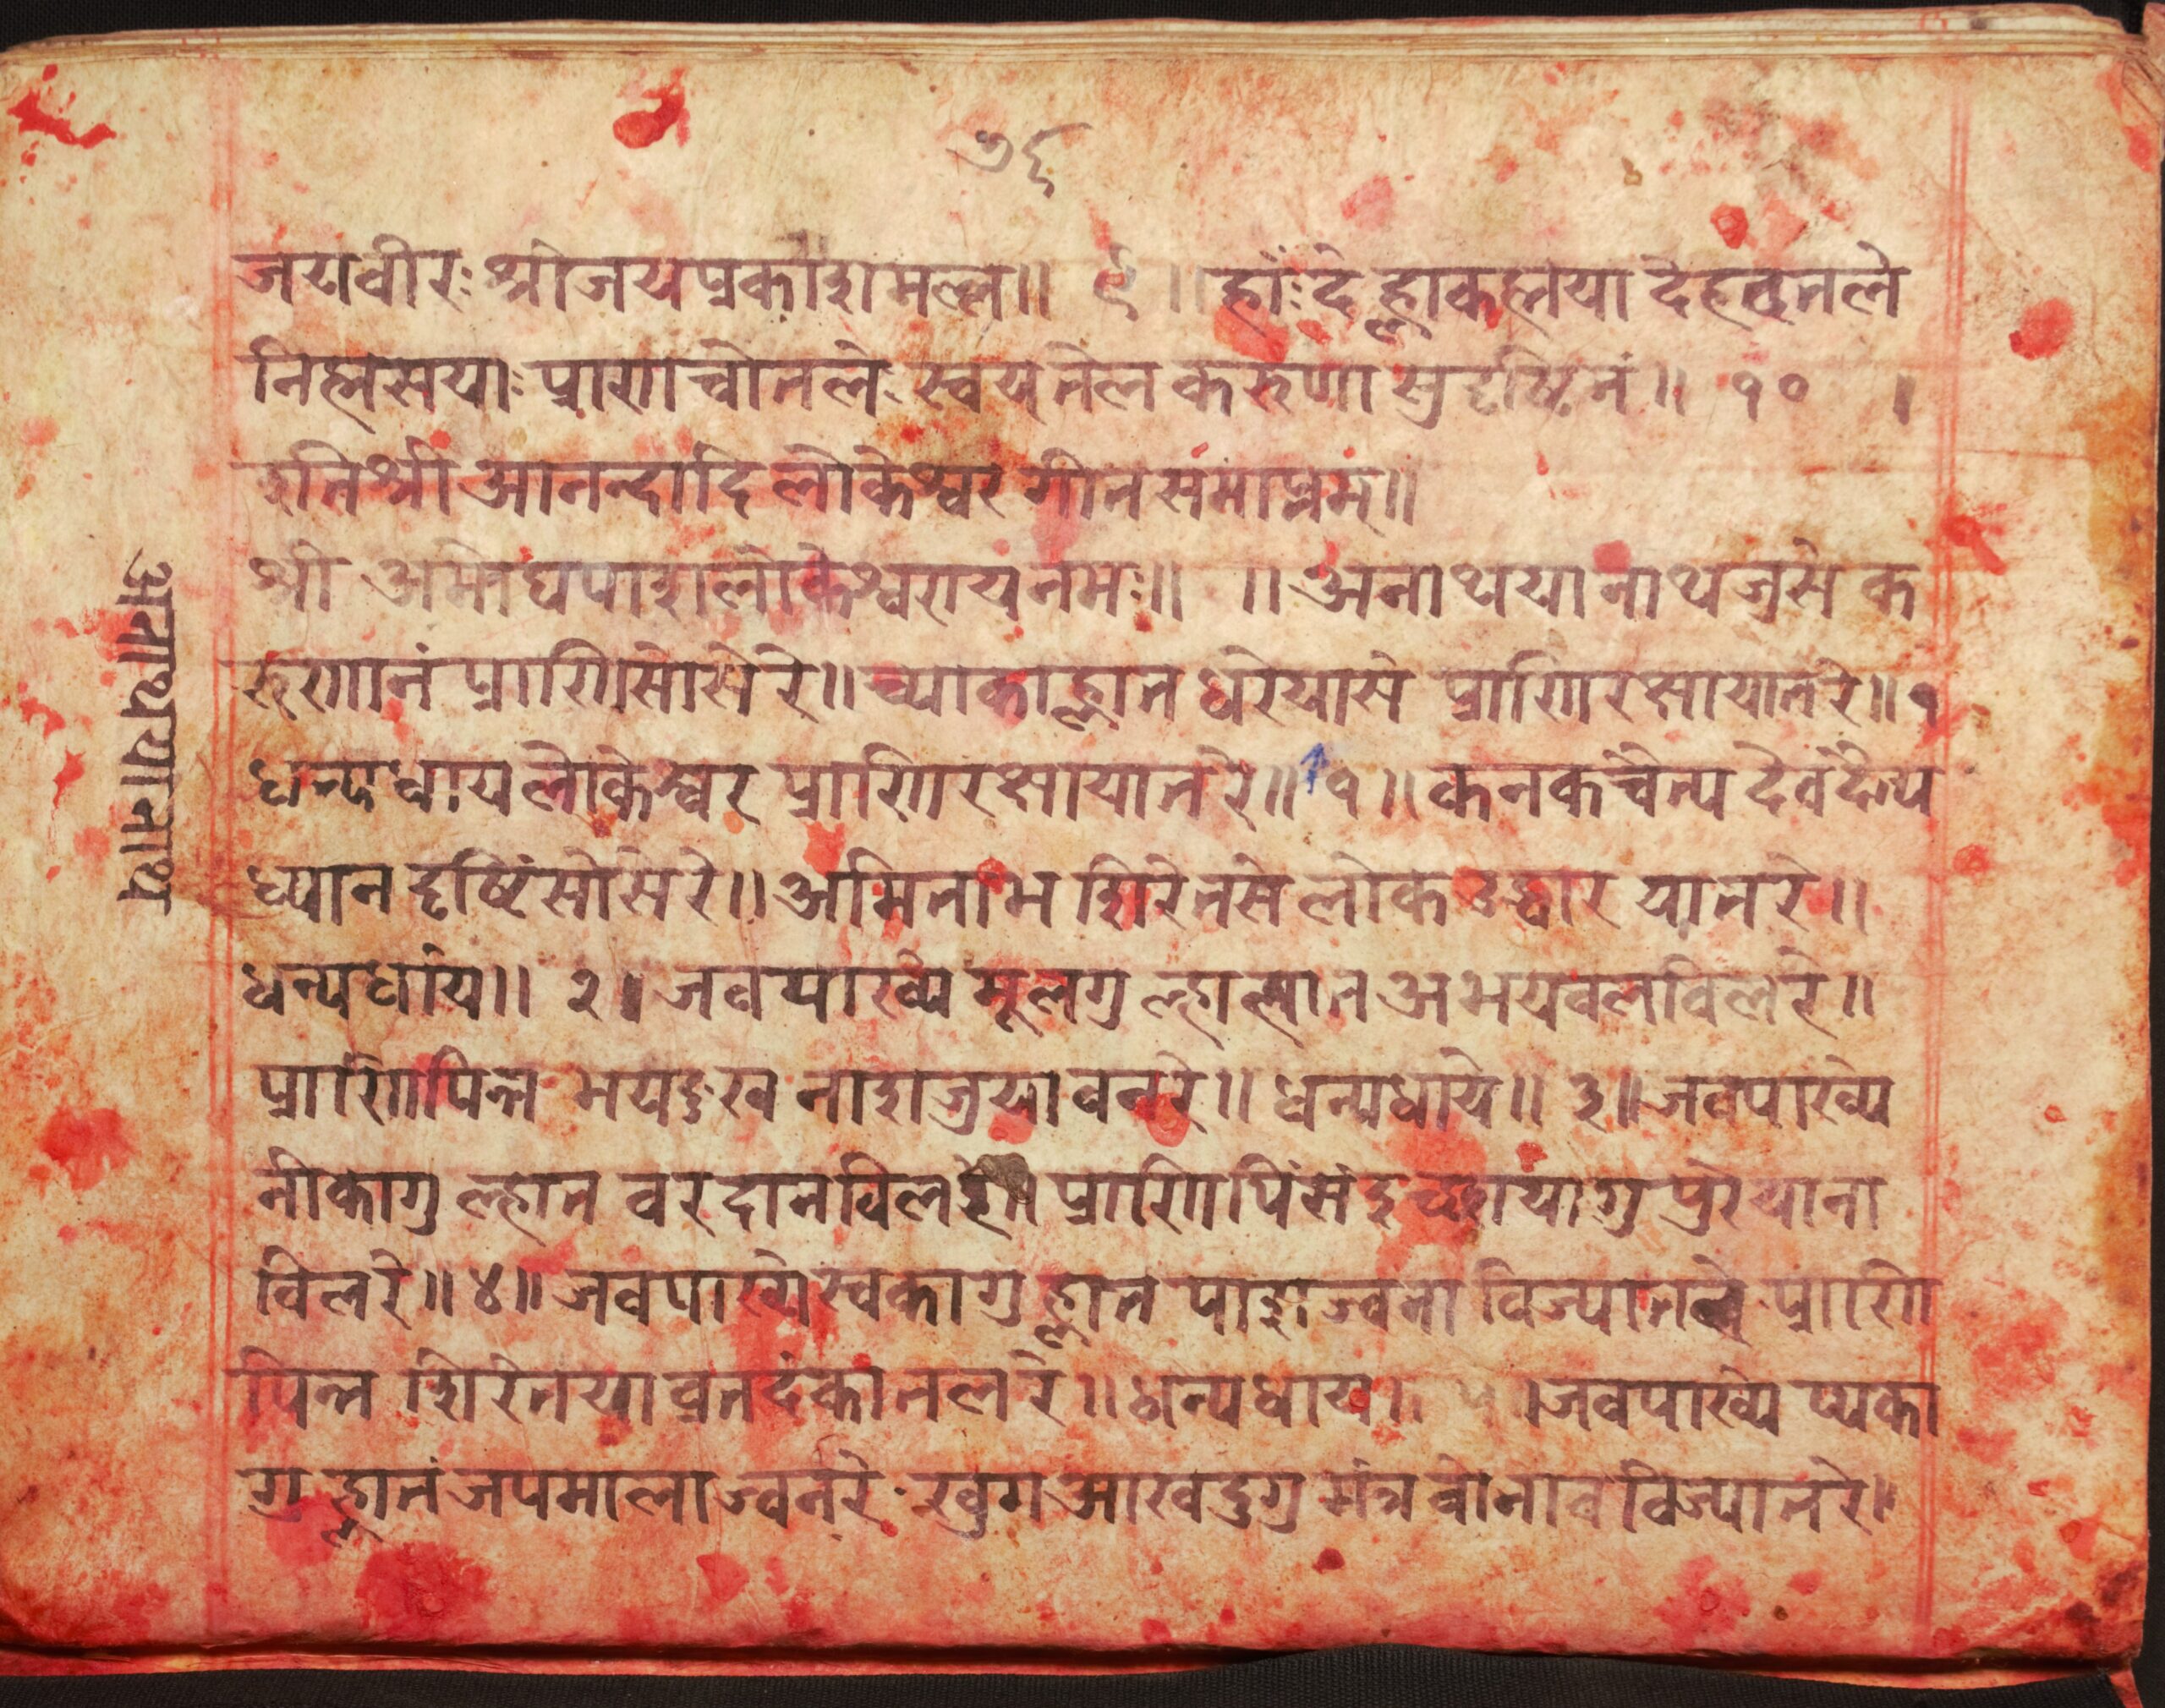 ७६
जयवीरः श्रीजयप्रकाशमल्ल॥ ९ ॥ हाँः दे ह्लाकह्मया देहत्वनले
निह्मसयाः प्राणाच्वोनलेः स्वयनेल करुणा सुदृष्टिनं॥ १० ।
इति श्री आनन्दादि लोकेश्वर गीत समाप्तम्॥
श्री अमोघपाशलोकेश्वराय नमः॥ ॥ अनाथया नाथजुसे क
रुणानं प्राणिसोसे रे॥ च्याकाह्लात धरेयासे प्राणिरक्षायातरे॥ १
धन्यधाय लोकेश्वर प्राणिरक्षायातरे॥ १॥ कनकचैत्य देवदैत्य
ध्यानदृष्टिं सोसे रे॥ अमिताभ शिरेतसे लोकउद्धार यातरे॥
धन्यधाय॥ २। जवपाख्यं मूलगु ल्हातान अभयवलविलरे॥
प्राणिपिन्त भयदुःख नाशजुयावनरे॥ धन्यधाय॥ ३॥ जवपाख्य
नीकागु ल्हातन वरदानविलरे॥ प्राणिपिंसं इच्छायागु पुरेयाना
विलरे॥ ४॥ जवपाख्य स्वकागु ह्लातन पाशज्वना विज्यातले प्राणि
पिन्त शिरेतया व्रतदंकातलरे॥ धन्यधाय॥ ५।जवपाख्य प्यका
गु ह्लातनं जपमाला ज्वनरे खुगआखदुगु मंत्र वोनाव विज्यातरे॥
अनाथयानाथ